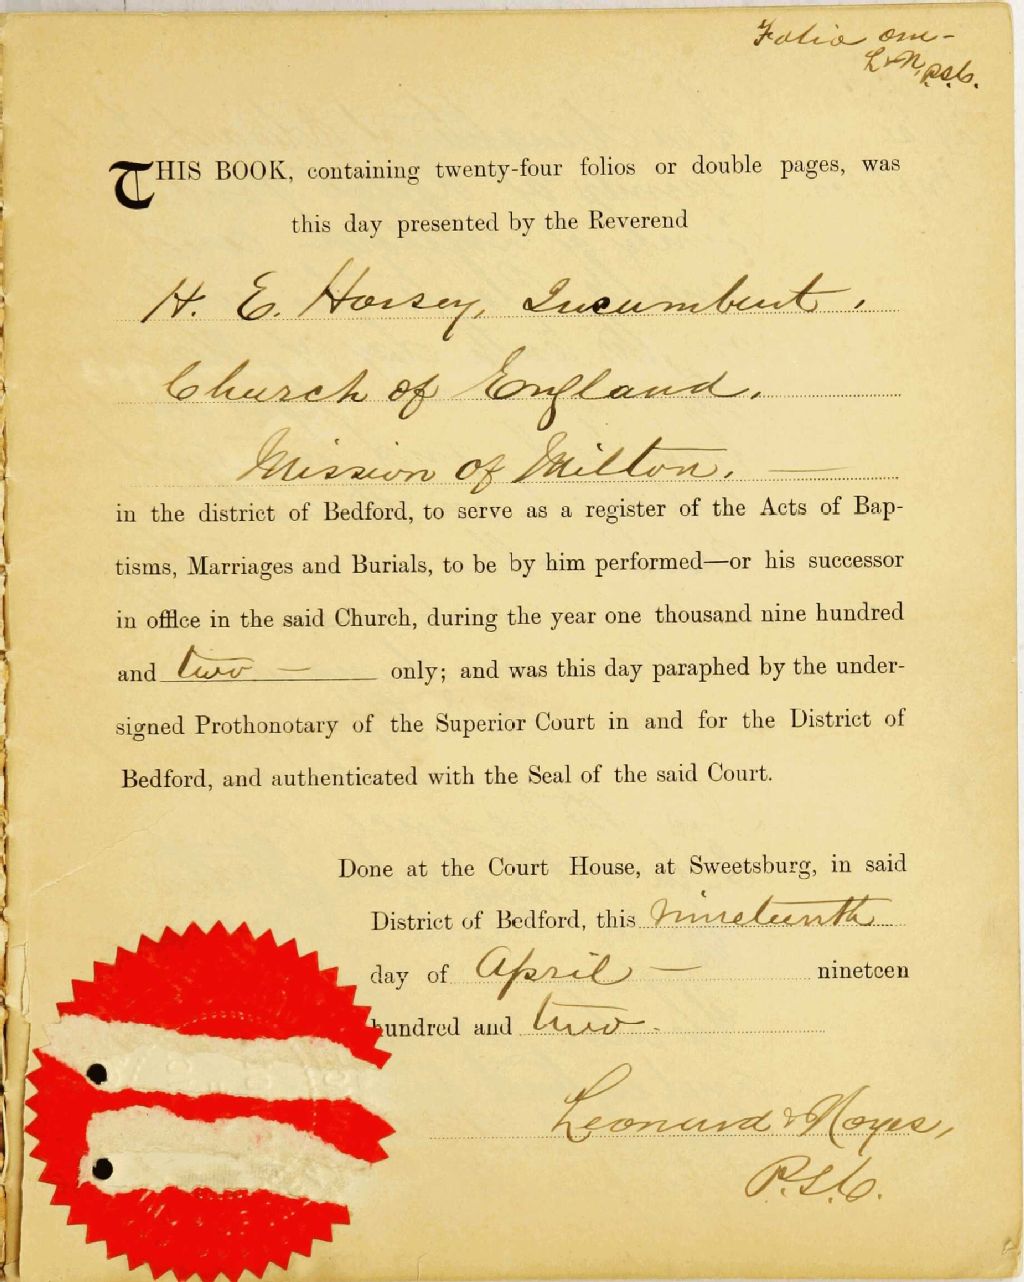 Folio one-
L & N, P.S.C.
THIS BOOK, containing twenty-four folios or double pages, was
this day presented by the Reverend
H. E. Horsey, Incumbent,
Church of England,
Mission of Milton. —
in the district of Bedford, to serve as a register of the Acts of Bap-
tisms, Marriages and Burials, to be by him performed—or his successor
in office in the said Church, during the year one thousand nine hundred
and two — only; and was this day paraphed by the under-
signed Prothonotary of the Superior Court in and for the District of
Bedford, and authenticated with the Seal of the said Court.
Done at the Court House, at Sweetsburg, in said
District of Bedford, this nineteenth
day of April — nineteen
hundred and two.
Leonard & Noyes,
P.S.C.